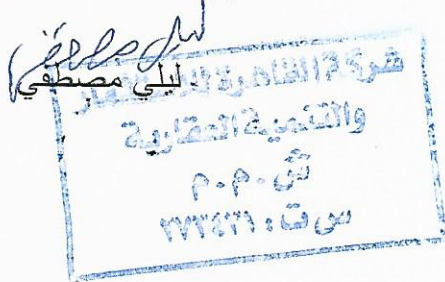 ليلي مصطفي
شركة القاهرة للاستثمار
والتنمية العقارية
ش.م.م
س ت: